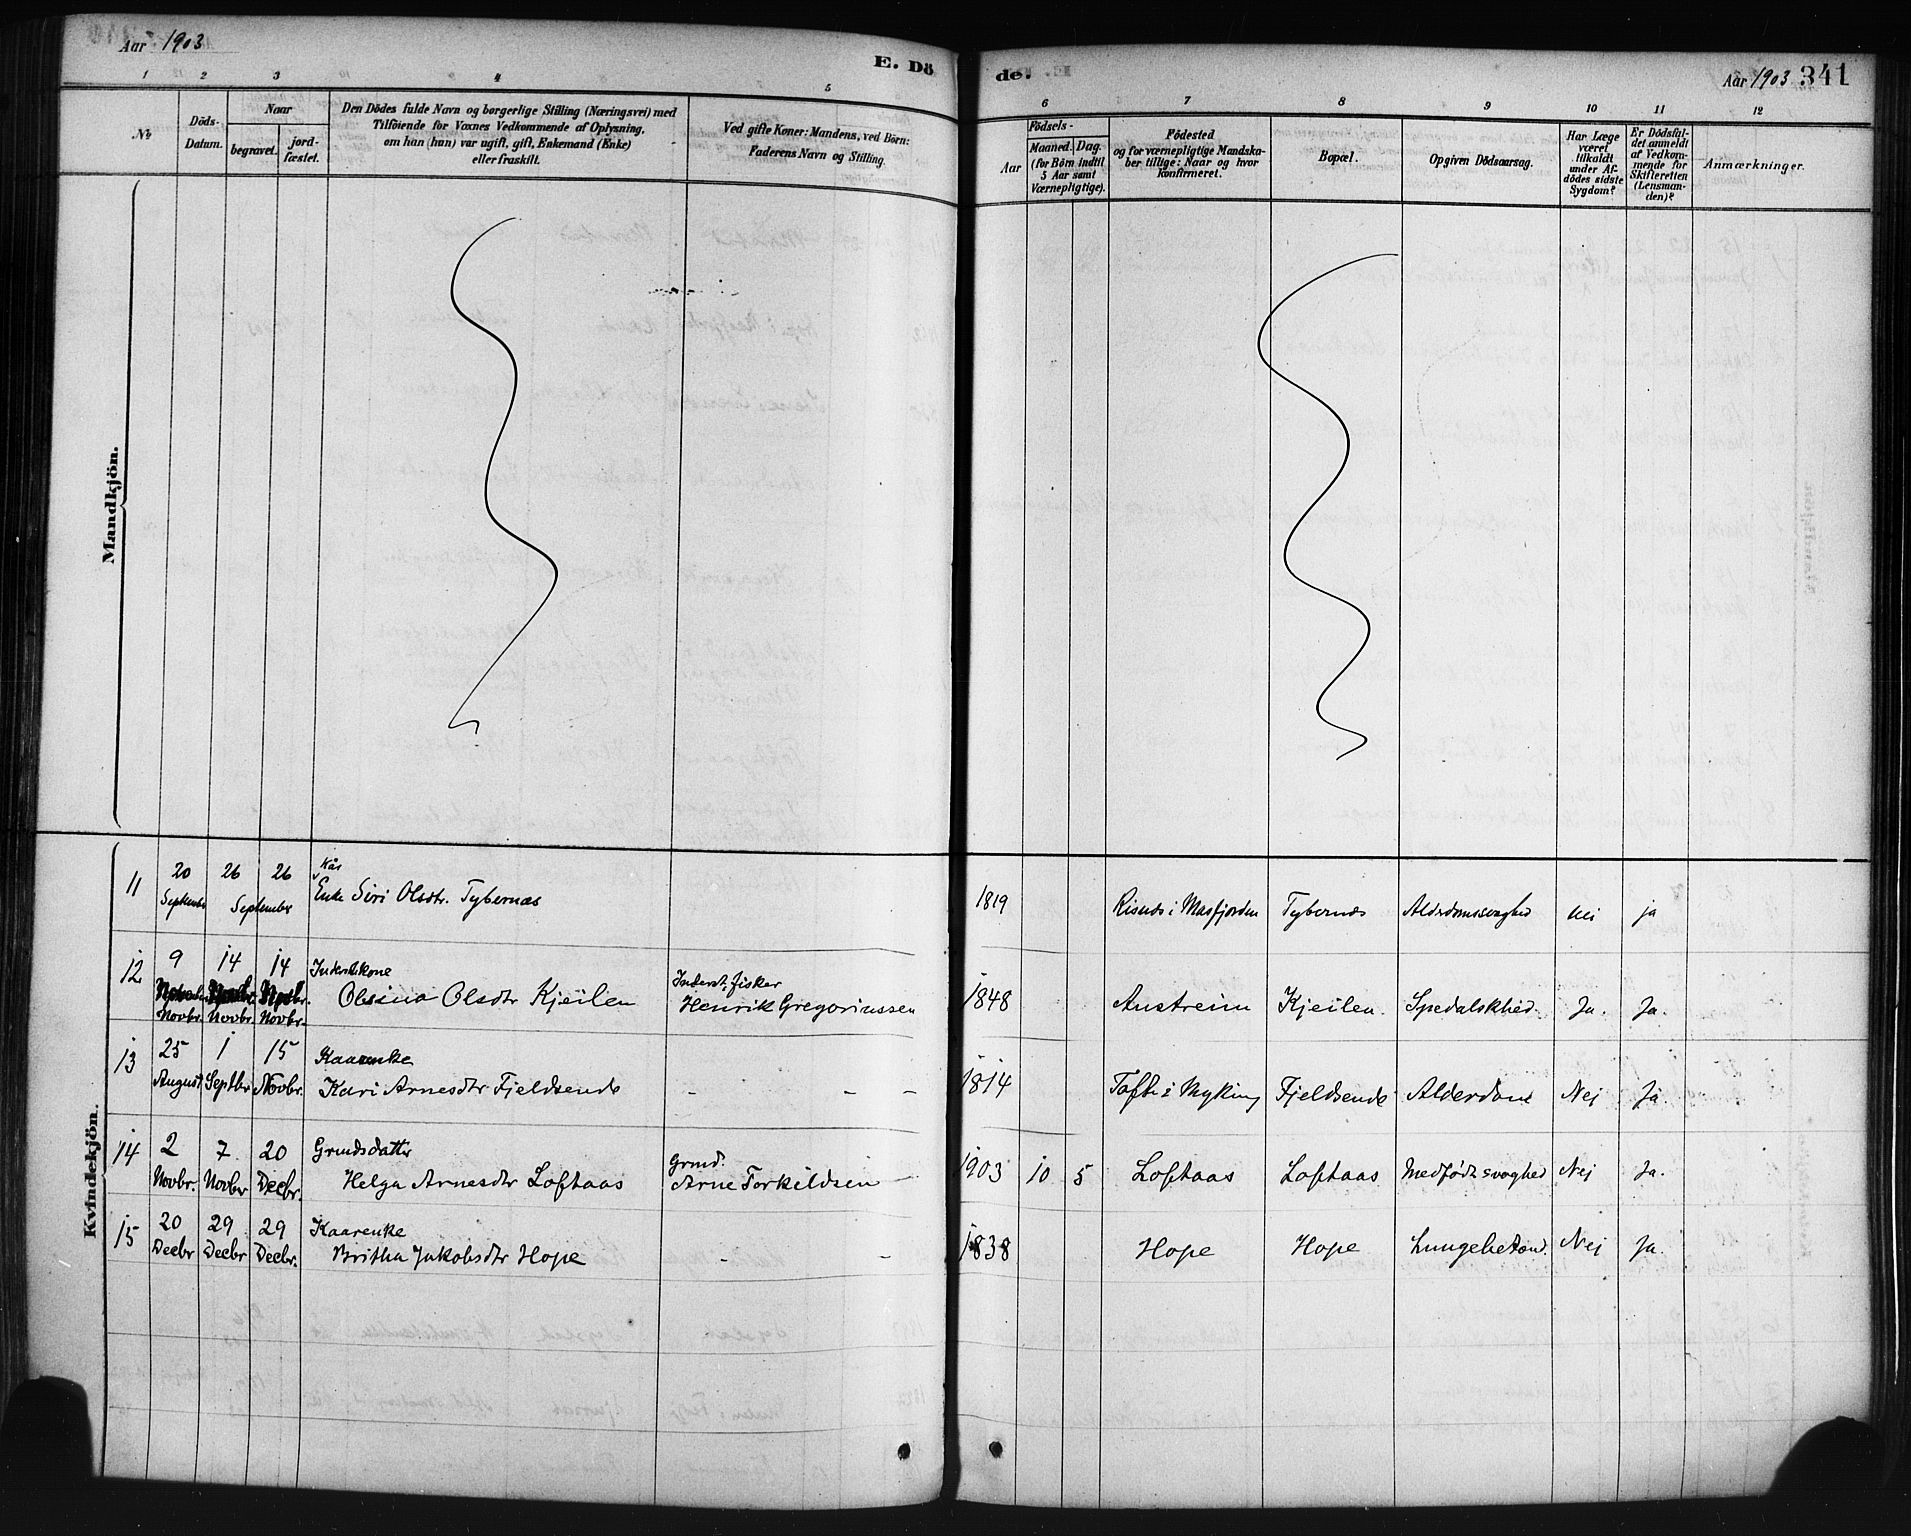 Aar 1903
E. Dö
de.
Aar 1903 341
1 2 3 4 5
6 7 8 9 10 11 12
No
Döds-
Datum.
Naar
begravet. jord-
fæstet.
Den Dödes fulde Navn og borgerlige Stilling (Næringsvei) med
Tilföiende for Voxnes Vedkommende af Oplysning,
om han (hun) var ugift, gift, Enkemand (Enke)
eller fraskilt.
Ved gifte Koner: Mandens, ved Börn:
Faderens Navn og Stilling.
Födsels-
Aar
Maaned. Dag.
(for Börn indtil
5 Aar samt
Værnepligtige).
Födested
og for værnepligtige Mandska-
ber tillige: Naar og hvor
konfirmeret.
Bopæl.
Opgiven Dödsaarsag.
Har Læge
været
tilkaldt
under Af-
dödes sidste
Sygdom?
Er Dödsfal-
det anmeldt
af Vedkom-
mende for
Skifteretten
(Lensman-
den)?
Anmærkninger.
Mandkjön.
Kvindekjön.
11 20 September 26 26 September
Kår
Enke Siri Olsdtr. Tybernæs
1819 Risnes i Masfjorden Tybernæs Alderdomssvaghed nei ja
12 9 Novbr. 14 Novbr. 14 Novbr.
Inderstkone
Olsina Olsdtr Kjeilen
Inderst, fisker
Henrik Gregoriussen
1848 Austreim Kjeilen. Spedalskhed. Ja. Ja.
13 25 August 1 Septbr 15 Novbr.
Kaarenke
Kari Arnesdtr Fjeldsende - - -
1814 Tofte i Myking Fjeldsende Alderdom Nej Ja.
14 2 Novbr. 7 Novbr 20 Decbr.
Grundsdatter
Helga Arnesdtr Loftaas
Grmd.
Arne Torkildsen
1903 10 5 Loftaas Loftaas Medfødt svaghed Nej Ja.
15 20 Decbr 29 Decbr 29 Decbr.
Kaarenke
Britha Jakobsdtr Hope - -
1838 Hope Hope Lungebetænd. Nej Ja.